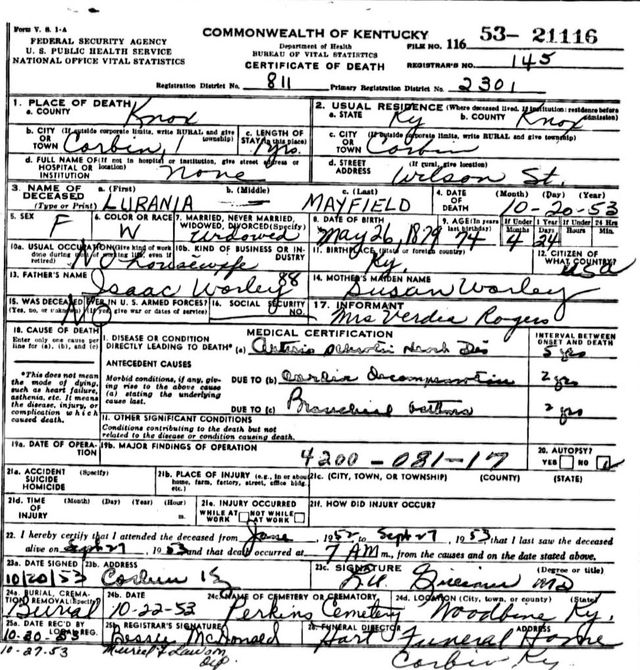 Form V. S. 1-A
FEDERAL SECURITY AGENCY
U. S. PUBLIC HEALTH SERVICE
NATIONAL OFFICE VITAL STATISTICS
COMMONWEALTH OF KENTUCKY
Department of Health
BUREAU OF VITAL STATISTICS
CERTIFICATE OF DEATH
FILE NO. 116 53- 21116
REGISTRAR'S NO. 145
Registration District No. 811 Primary Registration District No. 2301
1. PLACE OF DEATH
a. COUNTY Knox
2. USUAL RESIDENCE (Where deceased lived. If institution: residence before admission)
a. STATE Ky b. COUNTY Knox
b. CITY (If outside corporate limits, write RURAL and give township) OR TOWN Corbin
c. LENGTH OF STAY (in this place) yrs.
c. CITY (If outside corporate limits, write RURAL and give township) OR TOWN Corbin
d. FULL NAME OF (If not in hospital or institution, give street address or location) HOSPITAL OR INSTITUTION None
d. STREET ADDRESS (If rural, give location) Wilson St.
3. NAME OF DECEASED (Type or Print) a. (First) LURANIA b. (Middle) c. (Last) MAYFIELD
4. DATE OF DEATH (Month) (Day) (Year) 10-20-53
5. SEX F
6. COLOR OR RACE W
7. MARRIED, NEVER MARRIED, WIDOWED, DIVORCED (Specify) Widowed
8. DATE OF BIRTH May 26, 1879
9. AGE (In years last birthday) 74 If Under 1 Year Months 4 Days 24 If Under 24 Hrs. Hours Min.
10a. USUAL OCCUPATION (Give kind of work done during most of working life, even if retired) housewife
10b. KIND OF BUSINESS OR INDUSTRY
11. BIRTHPLACE (State or foreign country) Ky.
12. CITIZEN OF WHAT COUNTRY? USA
13. FATHER'S NAME Isaac Worley 88
14. MOTHER'S MAIDEN NAME Susan Worley
15. WAS DECEASED EVER IN U. S. ARMED FORCES? (Yes, no, or unknown) (If yes, give war or dates of service) No
16. SOCIAL SECURITY NO.
17. INFORMANT Mrs Verdie Rogers
18. CAUSE OF DEATH
Enter only one cause per line for (a), (b), and (c)
MEDICAL CERTIFICATION
INTERVAL BETWEEN ONSET AND DEATH
I. DISEASE OR CONDITION DIRECTLY LEADING TO DEATH* (a) Dis 5 yrs
*This does not mean the mode of dying, such as heart failure, asthenia, etc. It means the disease, injury, or complication which caused death.
ANTECEDENT CAUSES
Morbid conditions, if any, giving rise to the above cause (a) stating the underlying cause last.
DUE TO (b) cardiac decompensation 2 yrs
DUE TO (c) Bronchial asthma 2 yrs
II. OTHER SIGNIFICANT CONDITIONS
Conditions contributing to the death but not related to the disease or condition causing death.
19a. DATE OF OPERATION
19b. MAJOR FINDINGS OF OPERATION
4200-081-17
20. AUTOPSY? YES NO
21a. ACCIDENT SUICIDE HOMICIDE (Specify)
21b. PLACE OF INJURY (e.g., in or about home, farm, factory, street, office bldg., etc.)
21c. (CITY, TOWN, OR TOWNSHIP) (COUNTY) (STATE)
21d. TIME OF INJURY (Month) (Day) (Year) (Hour) m.
21e. INJURY OCCURRED WHILE AT WORK NOT WHILE AT WORK
21f. HOW DID INJURY OCCUR?
22. I hereby certify that I attended the deceased from June, 1952 to Sept 27, 1953 that I last saw the deceased
alive on Sept 27, 1953 and that death occurred at 7 AM m., from the causes and on the date stated above.
23a. DATE SIGNED 10/20/53
23b. ADDRESS Corbin Ky
23c. SIGNATURE (Degree or title) MD
24a. BURIAL, CREMATION REMOVAL (Specify) Burial
24b. DATE 10-22-53
24c. NAME OF CEMETERY OR CREMATORY Perkins Cemetery
24d. LOCATION (City, town, or county) (State) Woodbine Ky.
25a. DATE REC'D BY LOCAL REG. 10-20-53
25b. REGISTRAR'S SIGNATURE Bessie McDonald
26. FUNERAL DIRECTOR ADDRESS Hart Funeral Home
10-27-53 Muriel F Lawson Dep.
Corbin Ky